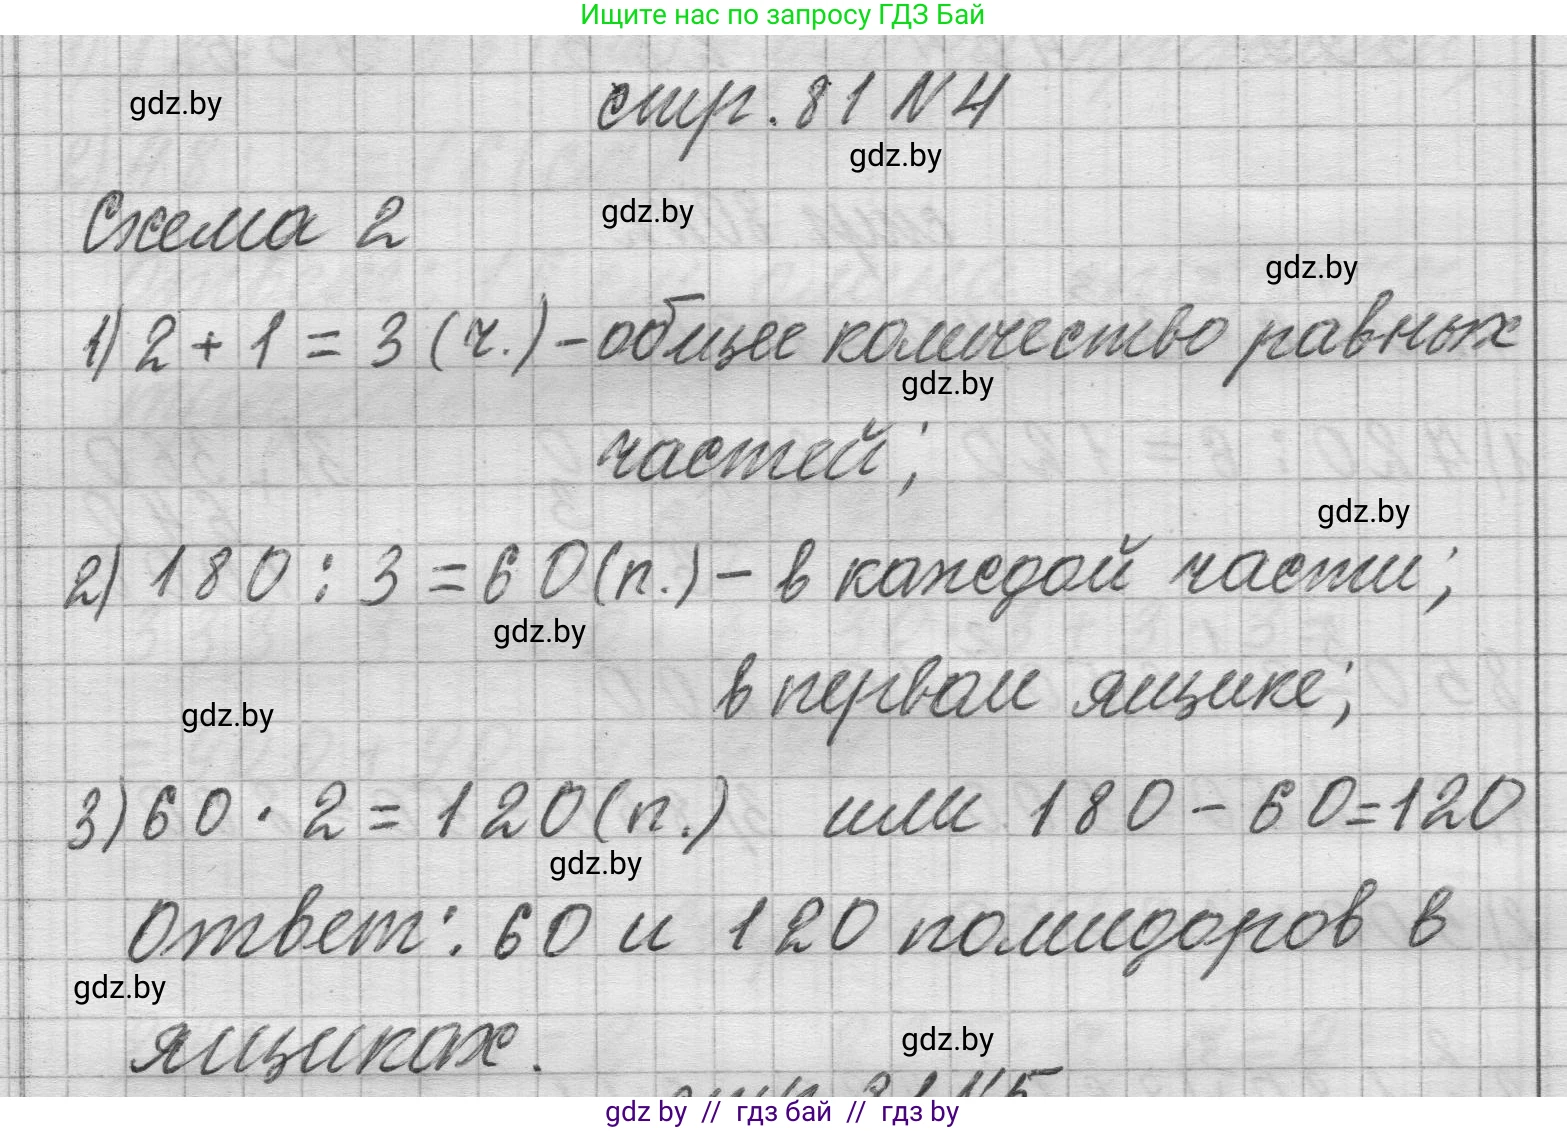 Ищите нас по запросу ГДЗ Бай
стр. 81 N 4
gdz.by
gdz.by
Схема 2
gdz.by
gdz.by
1) 2 + 1 = 3 (ч.) - общее количество равных
gdz.by
частей;
gdz.by
2) 180 : 3 = 60 (п.) - в каждой части;
gdz.by
в первом ящике;
gdz.by
3) 60 · 2 = 120 (п.) или 180 - 60 = 120
gdz.by
Ответ: 60 и 120 помидоров в
gdz.by
ящиках.
gdz.by
стр. 81 N 5
gdz by // гдз бай // гдз by